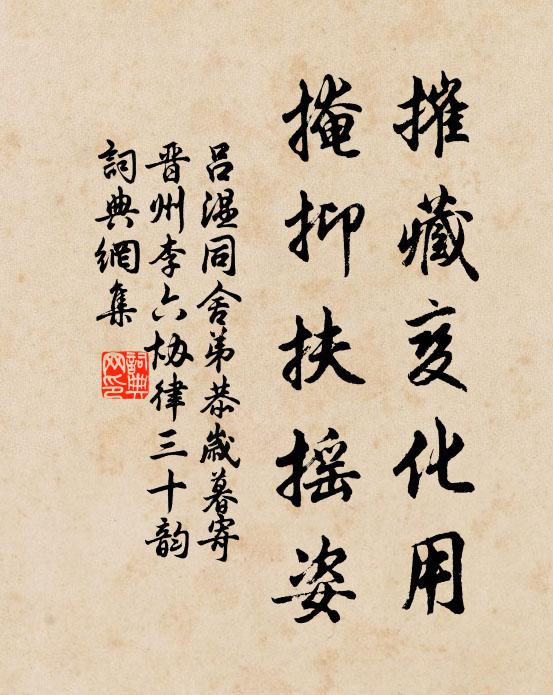 摧藏变化用
掩抑扶摇姿
吕温同舍弟恭岁暮寄
晋州李六协律三十韵
詞典網集
詞典网印